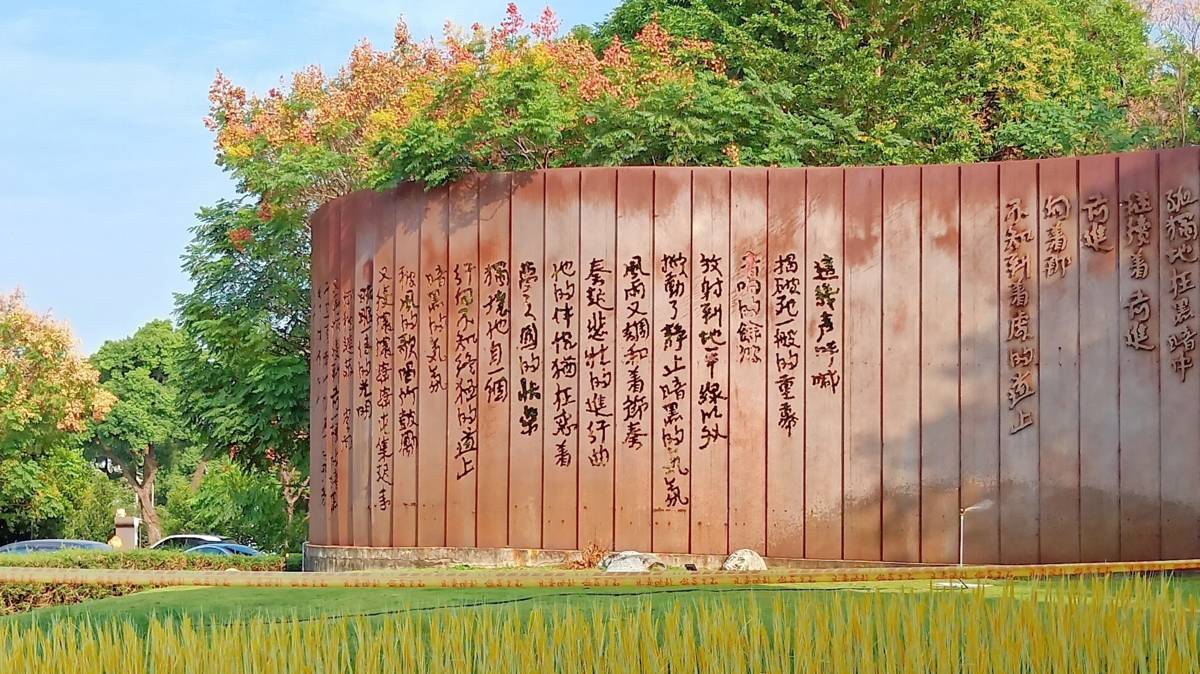 孤獨地在黑暗中
繼續着前進
前進
向着那
不知到着處的道上
這幾聲呼喊
揭破死一般的重幕
音響的餘波
放射到地平線以外
掀動了靜止暗黑的氣氛
風雨又調和着節奏
奏起悲壯的進行曲
他的伴侶猶在戀着
夢之國的快樂
獨讓他自一個
行向不知終極的道上
暗黑的氣氛
被風的歌唱所鼓勵
又復濃濃密密屯集起來
的光明